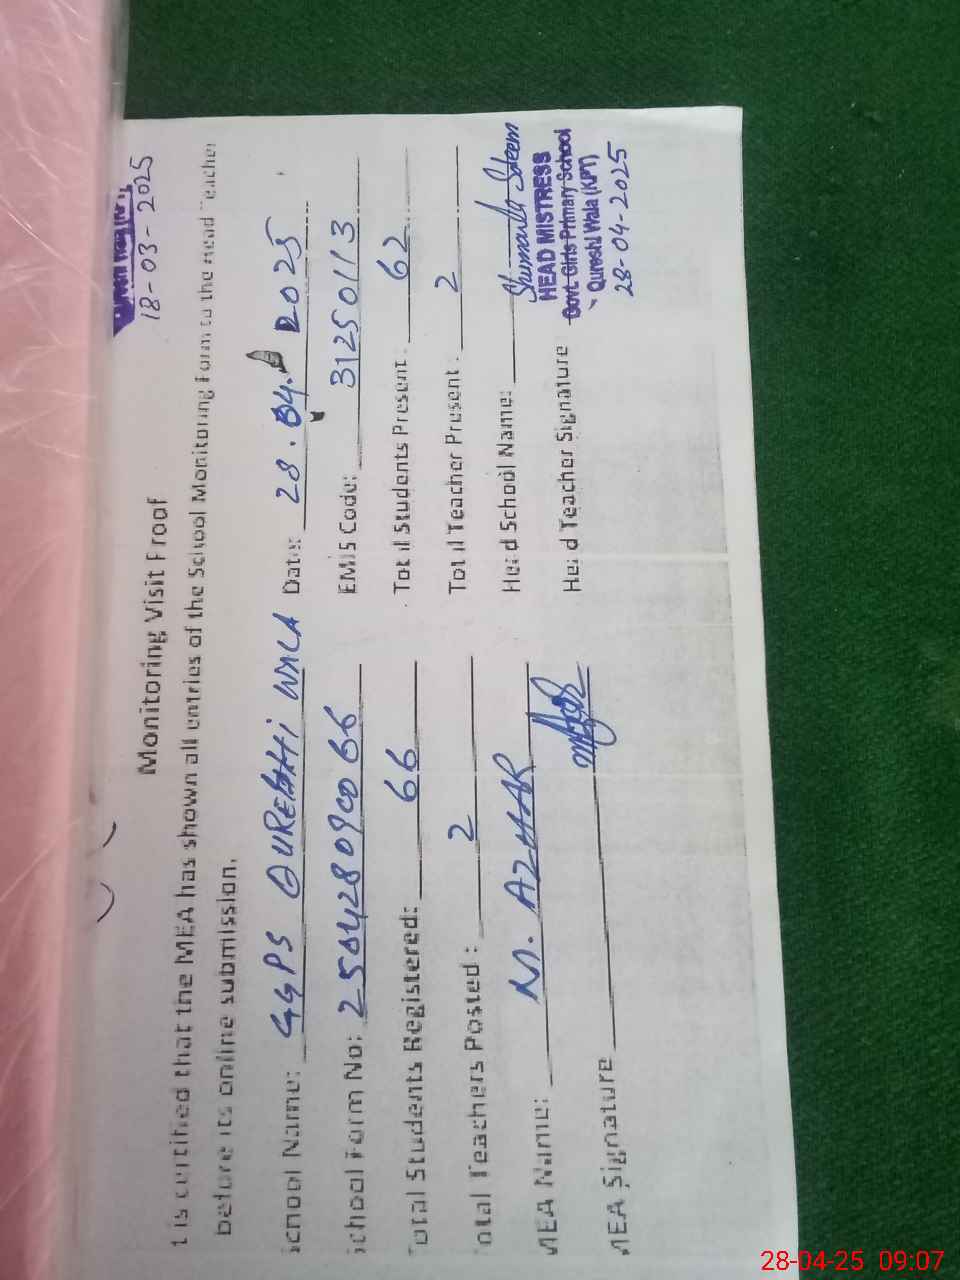 18-03-2025
Monitoring Visit Proof
t is certified that the MEA has shown all entries of the School Monitoring Form to the Head Teacher
before its online submission.
School Name: GGPS QURESHI WALA Date: 28.04.2025
School Form No: EMIS Code: 31250113
Total Students Registered: 66 Total Students Present: 62
Total Teachers Posted: 2 Total Teacher Present: 2
MEA Name: M. AZHAR Head School Name: Saleem
MEA Signature Head Teacher Signature
HEAD MISTRESS
Govt. Girls Primary School
Qureshi Wala (KPT)
28-04-2025
28-04-25 09:07